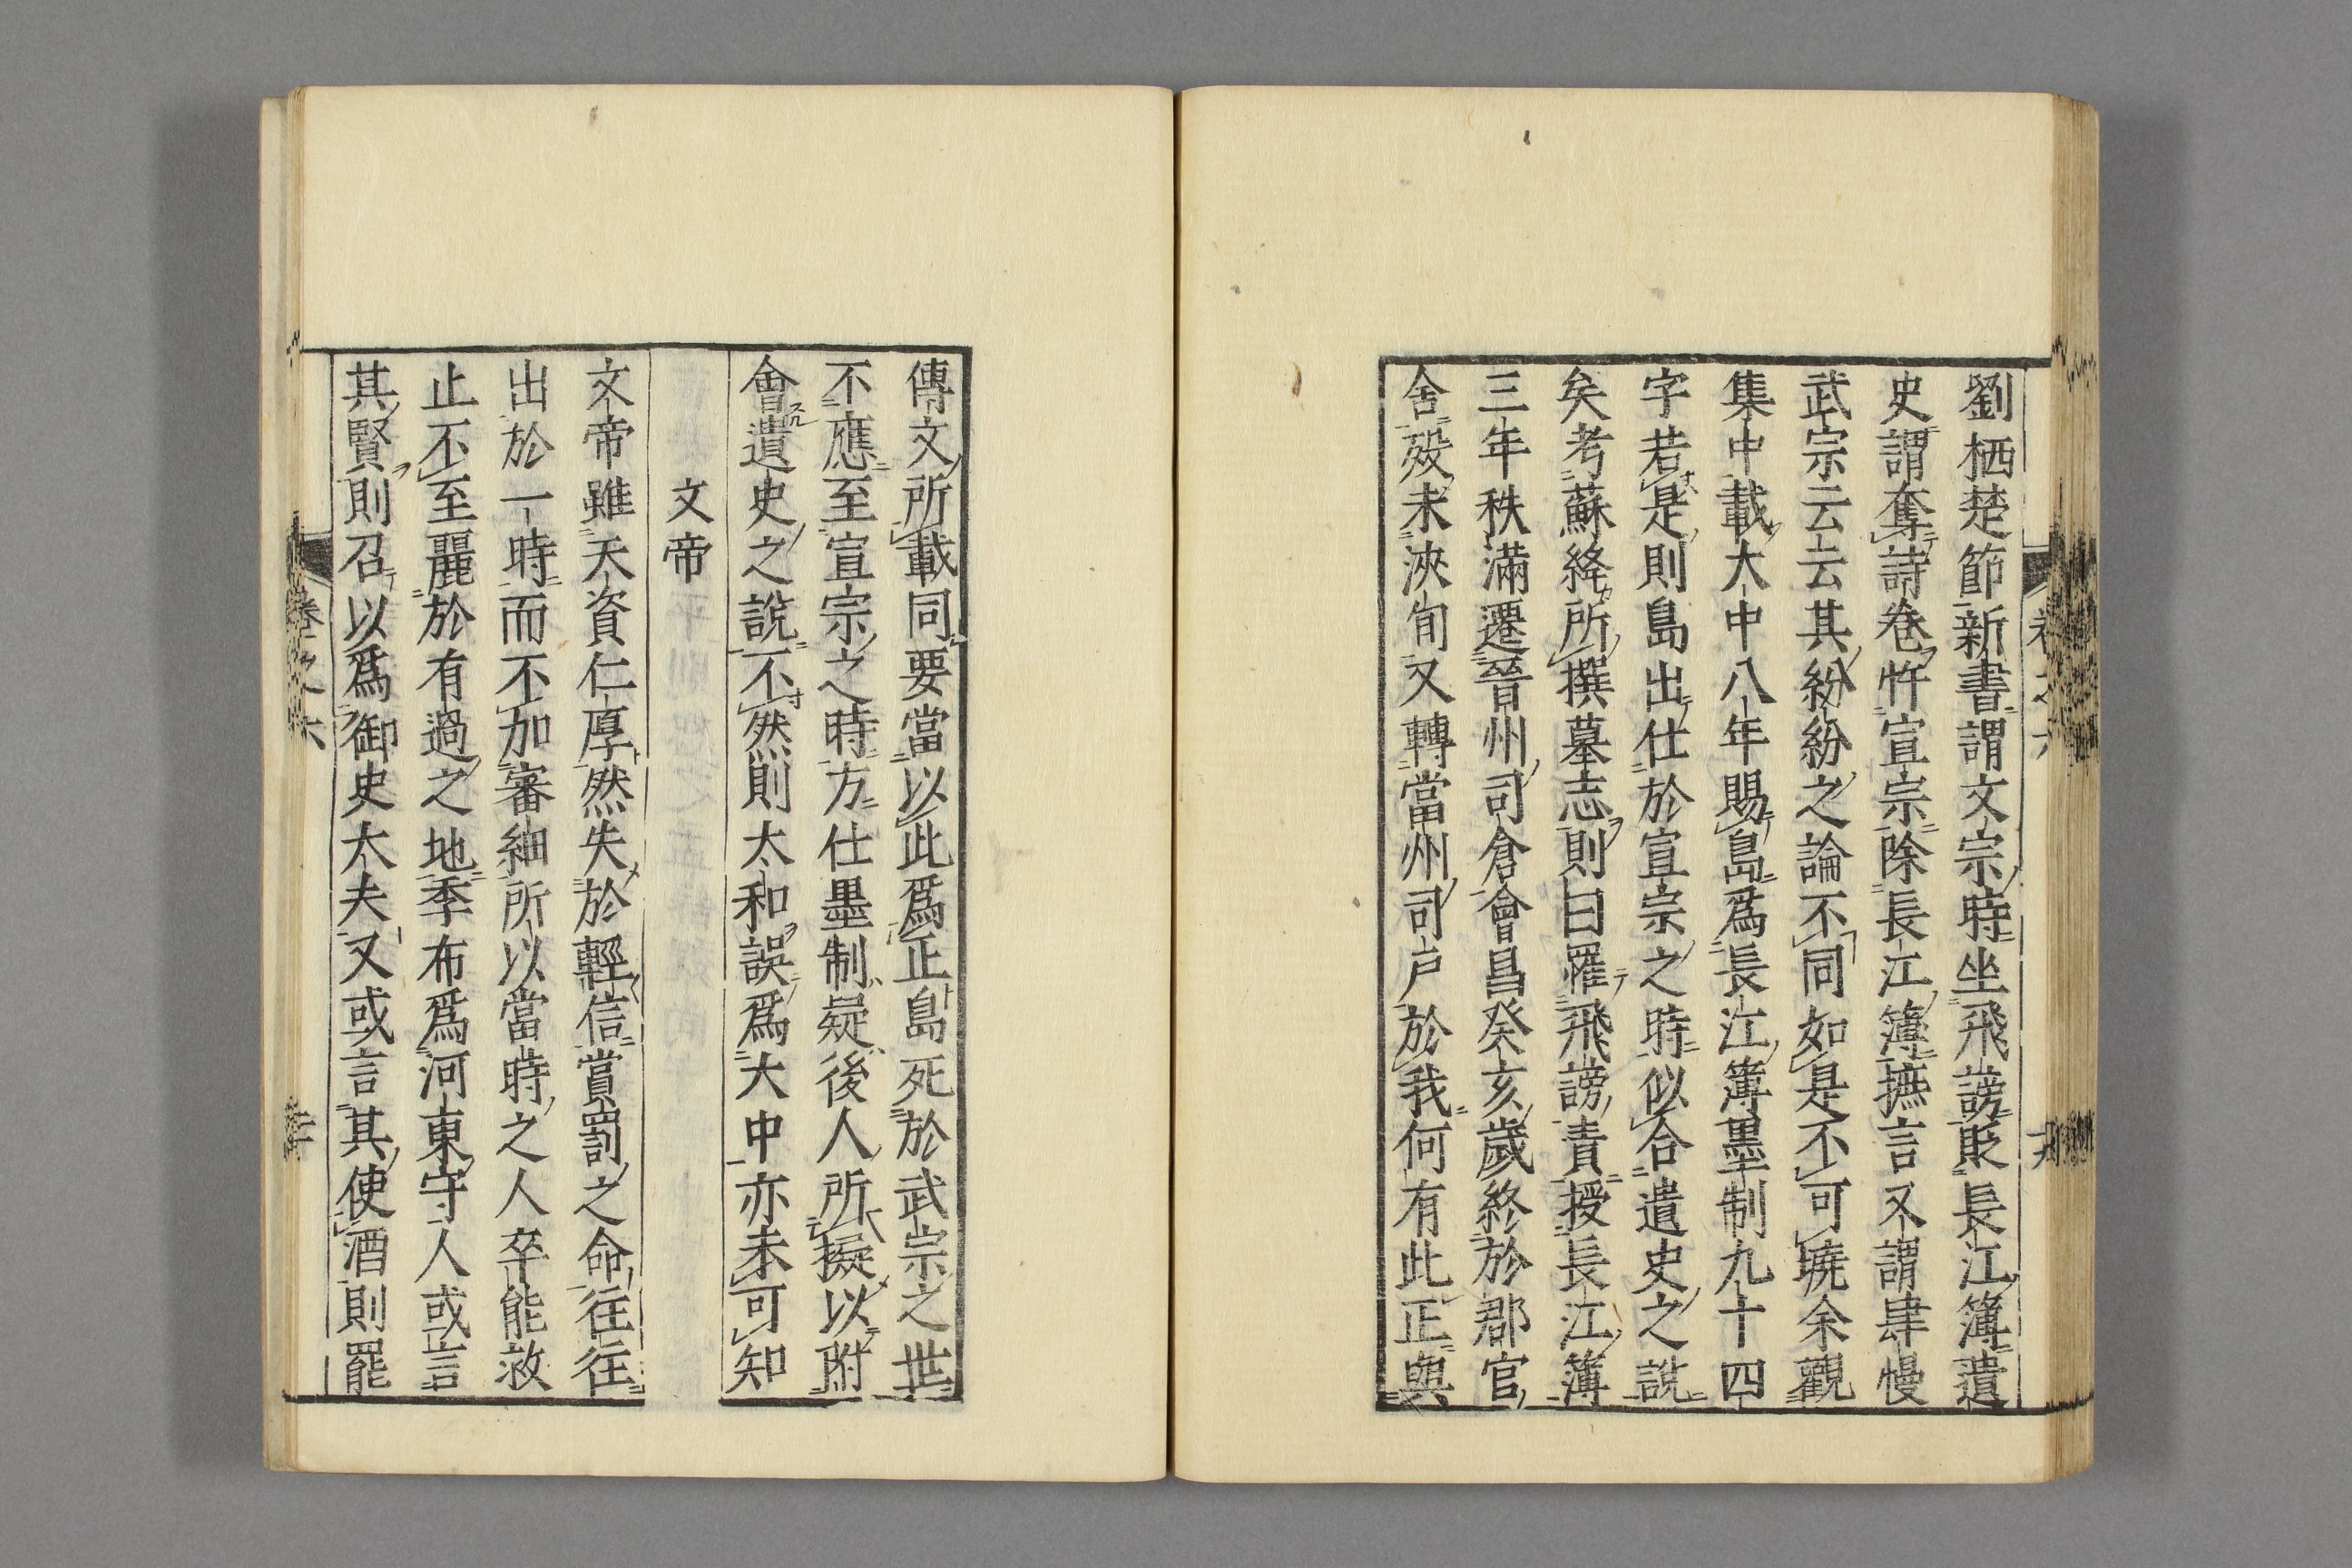 劉栖楚節新書謂文宗時坐飛謗貶長江簿遺
史謂奪詩卷忤宣宗除長江簿摭言又謂肆慢
武宗云云其紛紛之論不同如是不可曉余觀
集中載大中八年賜島爲長江簿墨制九十四
字若是則島出仕於宣宗之時似合遺史之說
矣考蘇絳所撰墓志則曰罹飛謗責授長江簿
三年秩滿遷晉州司倉會昌癸亥歲終於郡官
舍歿未浹旬又轉當州司户於我何有此正與
傳文所載同要當以此爲正島死於武宗之世
不應至宣宗之時方仕墨制疑後人所擬以附
會遺史之說不然則太和誤爲大中亦未可知
文帝
文帝雖天資仁厚然失於輕信賞罰之命往往
出於一時而不加審細所以當時之人卒能救
止不至麗於有過之地季布爲河東守人或言
其賢則召以爲御史大夫又或言其使酒則罷
卷之六